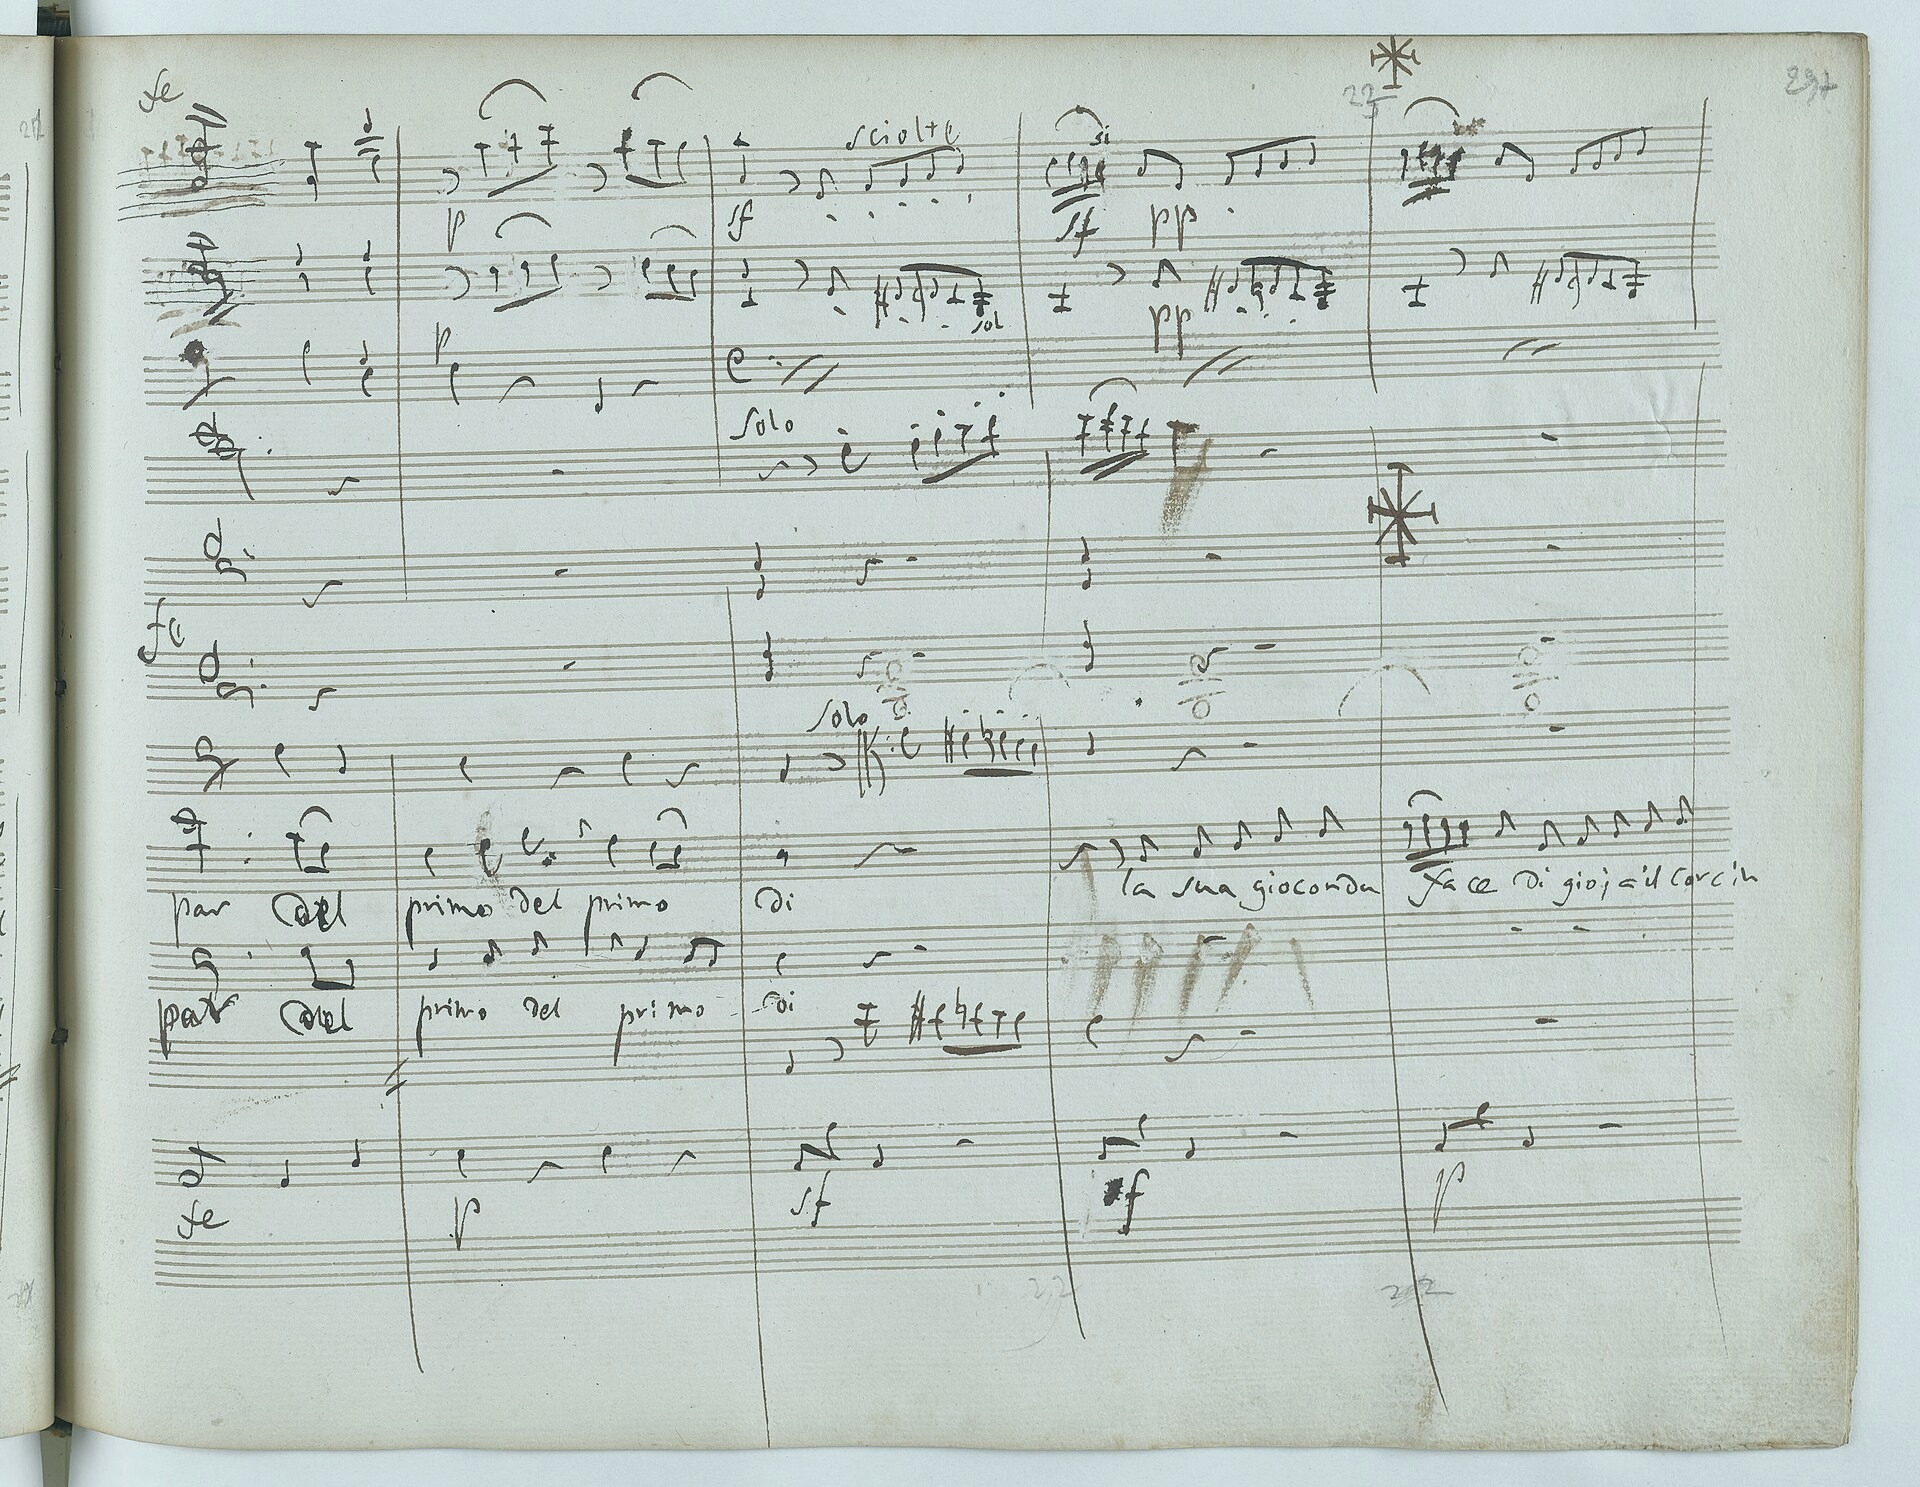 fe
22
sciolte
si
p
sf
sf
pp
sol
p
pp
solo
fe
solo
par del primo del primo di la sua gioconda face di gioja il cor c'in
par del primo del primo di
fe p sf sf p
22
22